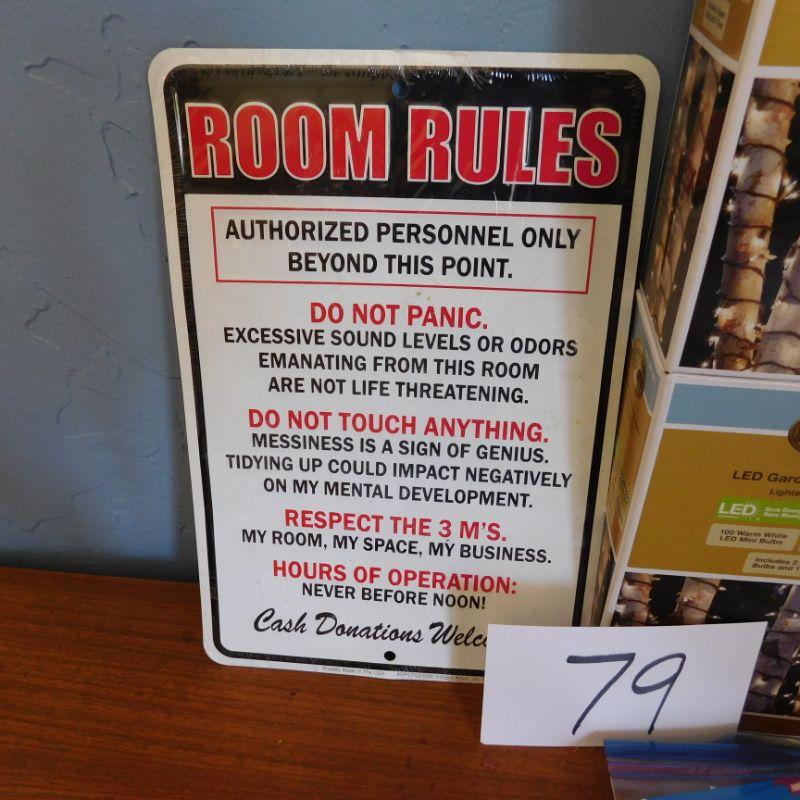 ROOM RULES
AUTHORIZED PERSONNEL ONLY
BEYOND THIS POINT.
DO NOT PANIC.
EXCESSIVE SOUND LEVELS OR ODORS
EMANATING FROM THIS ROOM
ARE NOT LIFE THREATENING.
DO NOT TOUCH ANYTHING.
MESSINESS IS A SIGN OF GENIUS.
TIDYING UP COULD IMPACT NEGATIVELY
ON MY MENTAL DEVELOPMENT.
RESPECT THE 3 M'S.
MY ROOM, MY SPACE, MY BUSINESS.
HOURS OF OPERATION:
NEVER BEFORE NOON!
Cash Donations Welc
Proudly Made In The USA
79
LED Gard
Lighte
LED
Save Energy
Save Money
100 Warm White
LED Mini Bulbs
Includes 2
Bulbs and 1